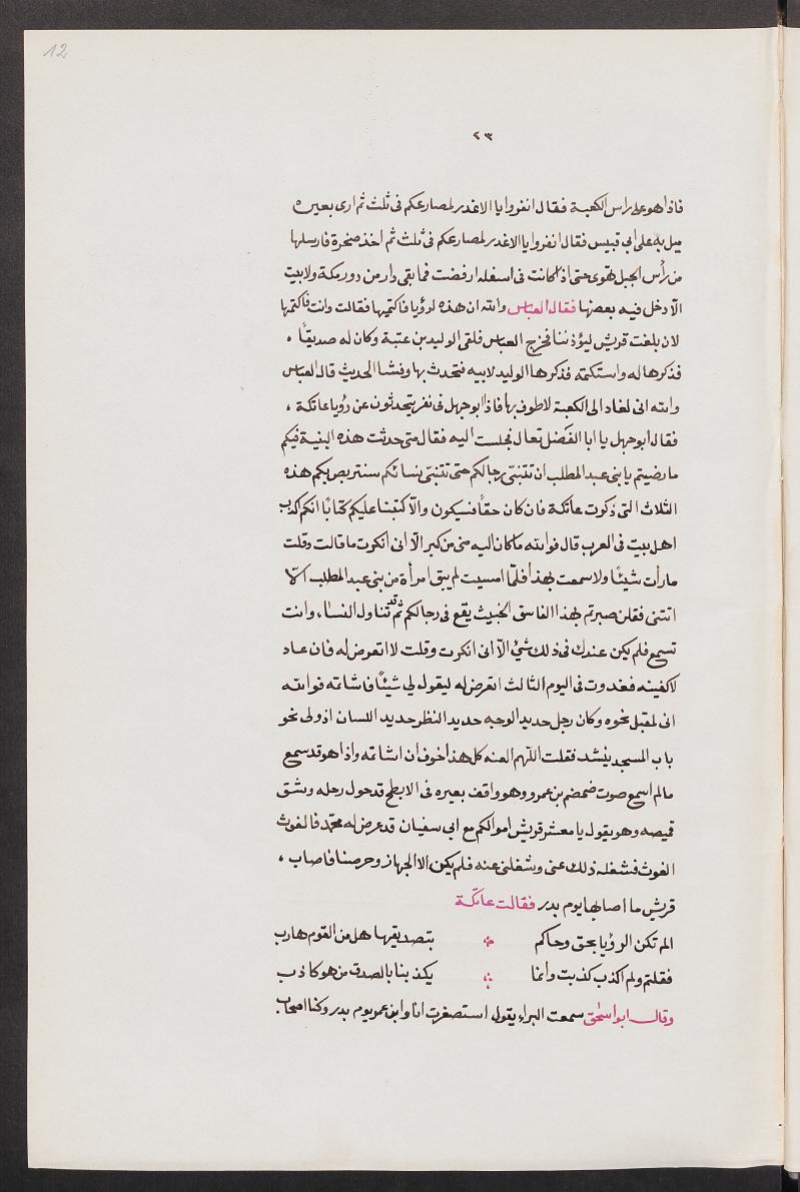 12
٢٣
فاذا هو على راس الكعبة فقال انفروا يا الاغدر لمصارعكم فى ثلث ثم ارى بعيره
مثل به على ابى قبيس فقال انفروا يا الاغدر لمصارعكم فى ثلث ثم اخذ صخرة فارسلها
من رأس الجبل تهوى حتى اذا كانت فى اسفله ارفضت فما بقى دار من دور مكة ولا بيت
الّا دخل فيه بعضها فقال العباس والله ان هذه لرؤيا فاكتميها فقالت وانت فاكتمها
لان بلغت قريش ليؤذننا فخرج العباس فلقى الوليد بن عتبة وكان له صديقًا ،
فذكرها له واستكتمه فذكرها الوليد لابيه فتحدث بها وفشا الحديث قال العباس
والله انى لغاد الى الكعبة لاطوف بها فاذا ابو جهل فى نفر يتحدثون عن رؤيا عاتكة ،
فقال ابو جهل يا ابا الفضل تعال فجلست اليه فقال متى حدثت هذه النبية فيكم
ما رضيتم يا بنى عبد المطلب ان تتنبّى رجالكم حتى تتنبّى نسائكم سنتربص بكم هذه
الثلاث التى ذكرت عاتكة فان كان حقًا فسيكون والّا كتبنا عليكم كتابًا انكم اكذب
اهل بيت فى العرب قال فوالله ما كان اليه منى من كبر الّا انى انكرت ما قالت وقلت
ما رأت شيئًا ولا سمعت بهذا فلمّا امسيت لم يبق امرأة من بنى عبد المطلب الّا
اتتنى فقلن صبرتم لهذا الفاسق الخبيث يقع فى رجالكم ثم قد تناول النسا، وانت
تسمع فلم يكن عندك فى ذلك شئ الّا انى انكرت وقلت لا اتعرض له فان عاد
لاكفينه فغدوت فى اليوم الثالث اتعرض له ليقول لي شيئًا فاشاتمه فوالله
انى لمقبل نحوه وكان رجل حديد الوجه حديد النظر حديد اللسان اذ ولى نحو
باب المسجد يشد فقلت اللّهم العنه كل هذا خوف ان اشاتمه واذا هو قد سمع
مالم اسمع صوت ضمضم بن عمرو وهو واقف بعيره فى الابطح قد حول رحله وشق
قميصه وهو يقول يا معشر قريش اموالكم مع ابى سفيان قد عرض له محمّد فالغوث
الغوث فشغله ذلك عنى وشغلنى عنه فلم يكن الا الجهاز وحرصنا فاصاب ،
قريش ما اصابها يوم بدر فقالت عاتكة
الم تكن الرؤيا بحق وجاكم ⁘ بتصديقها هل من القوم هارب
فقلتم ولم اكذب كذبت وانما ⁘ يكذبنا بالصدق من هو كاذب
وقال ابو اسحق سمعت البراء يقول استصغرت انا وابن عمر يوم بدر وكنا اصحاب